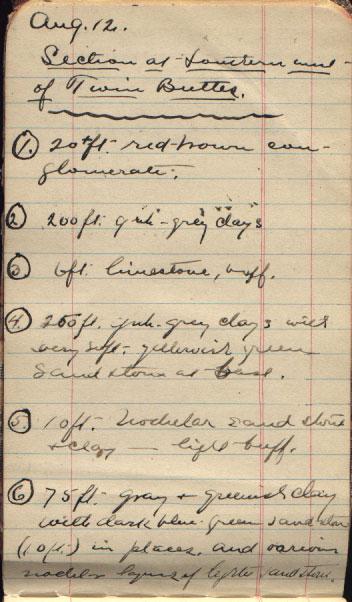 Aug. 12.
Section at Southern end
of Twin Buttes.
1. 20+ft. red-brown con-
glomerate.
2. 200ft. pink-grey clays
3 6ft. limestone, buff.
4. 250ft. pink-grey clays with
very soft yellowish green
sandstone at base.
5. 10ft. Nodular sandstone
+ clay — light buff.
6 75ft. gray + greenish clay
with dark blue-green sandstone
(10ft.) in places, and various
nodular layers of lighter sandstone.